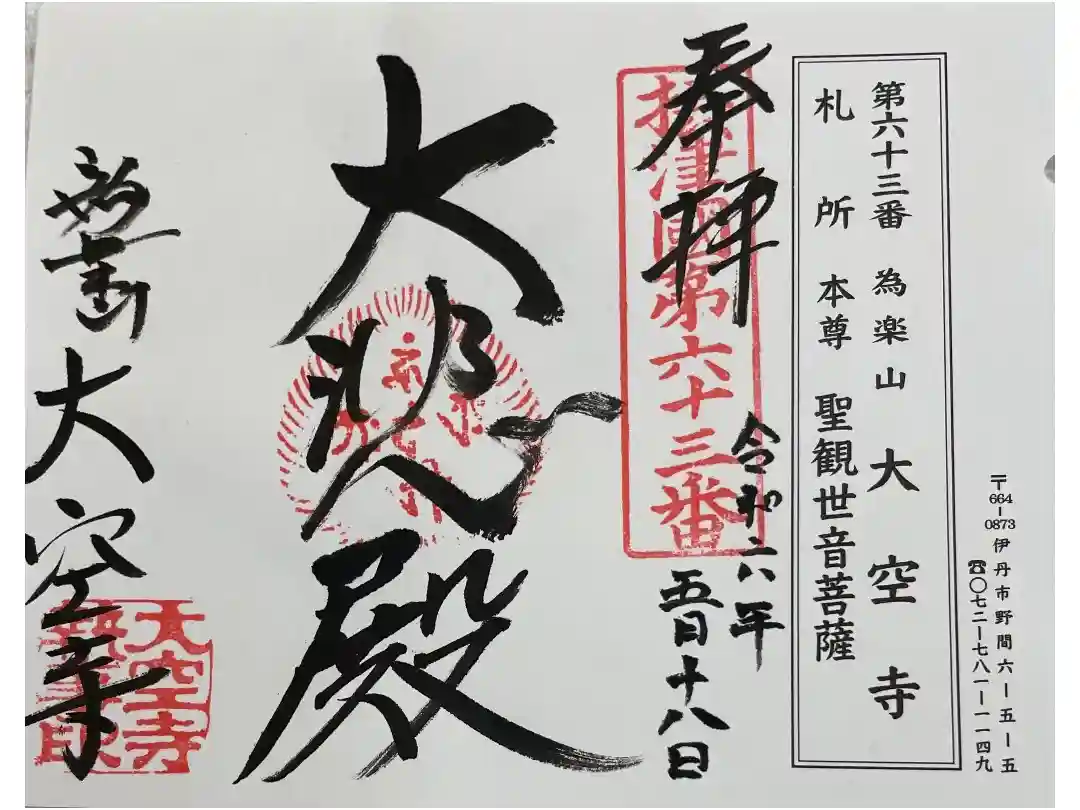 〒664-0873 伊丹市野間六ー五ー五
☎〇七二ー七八一ー一一四九
第六十三番 為楽山 大空寺
札所 本尊 聖観世音菩薩
奉拝
摂津國第六十三番
令和六年
五月十八日
大悲殿
大空寺
大空寺